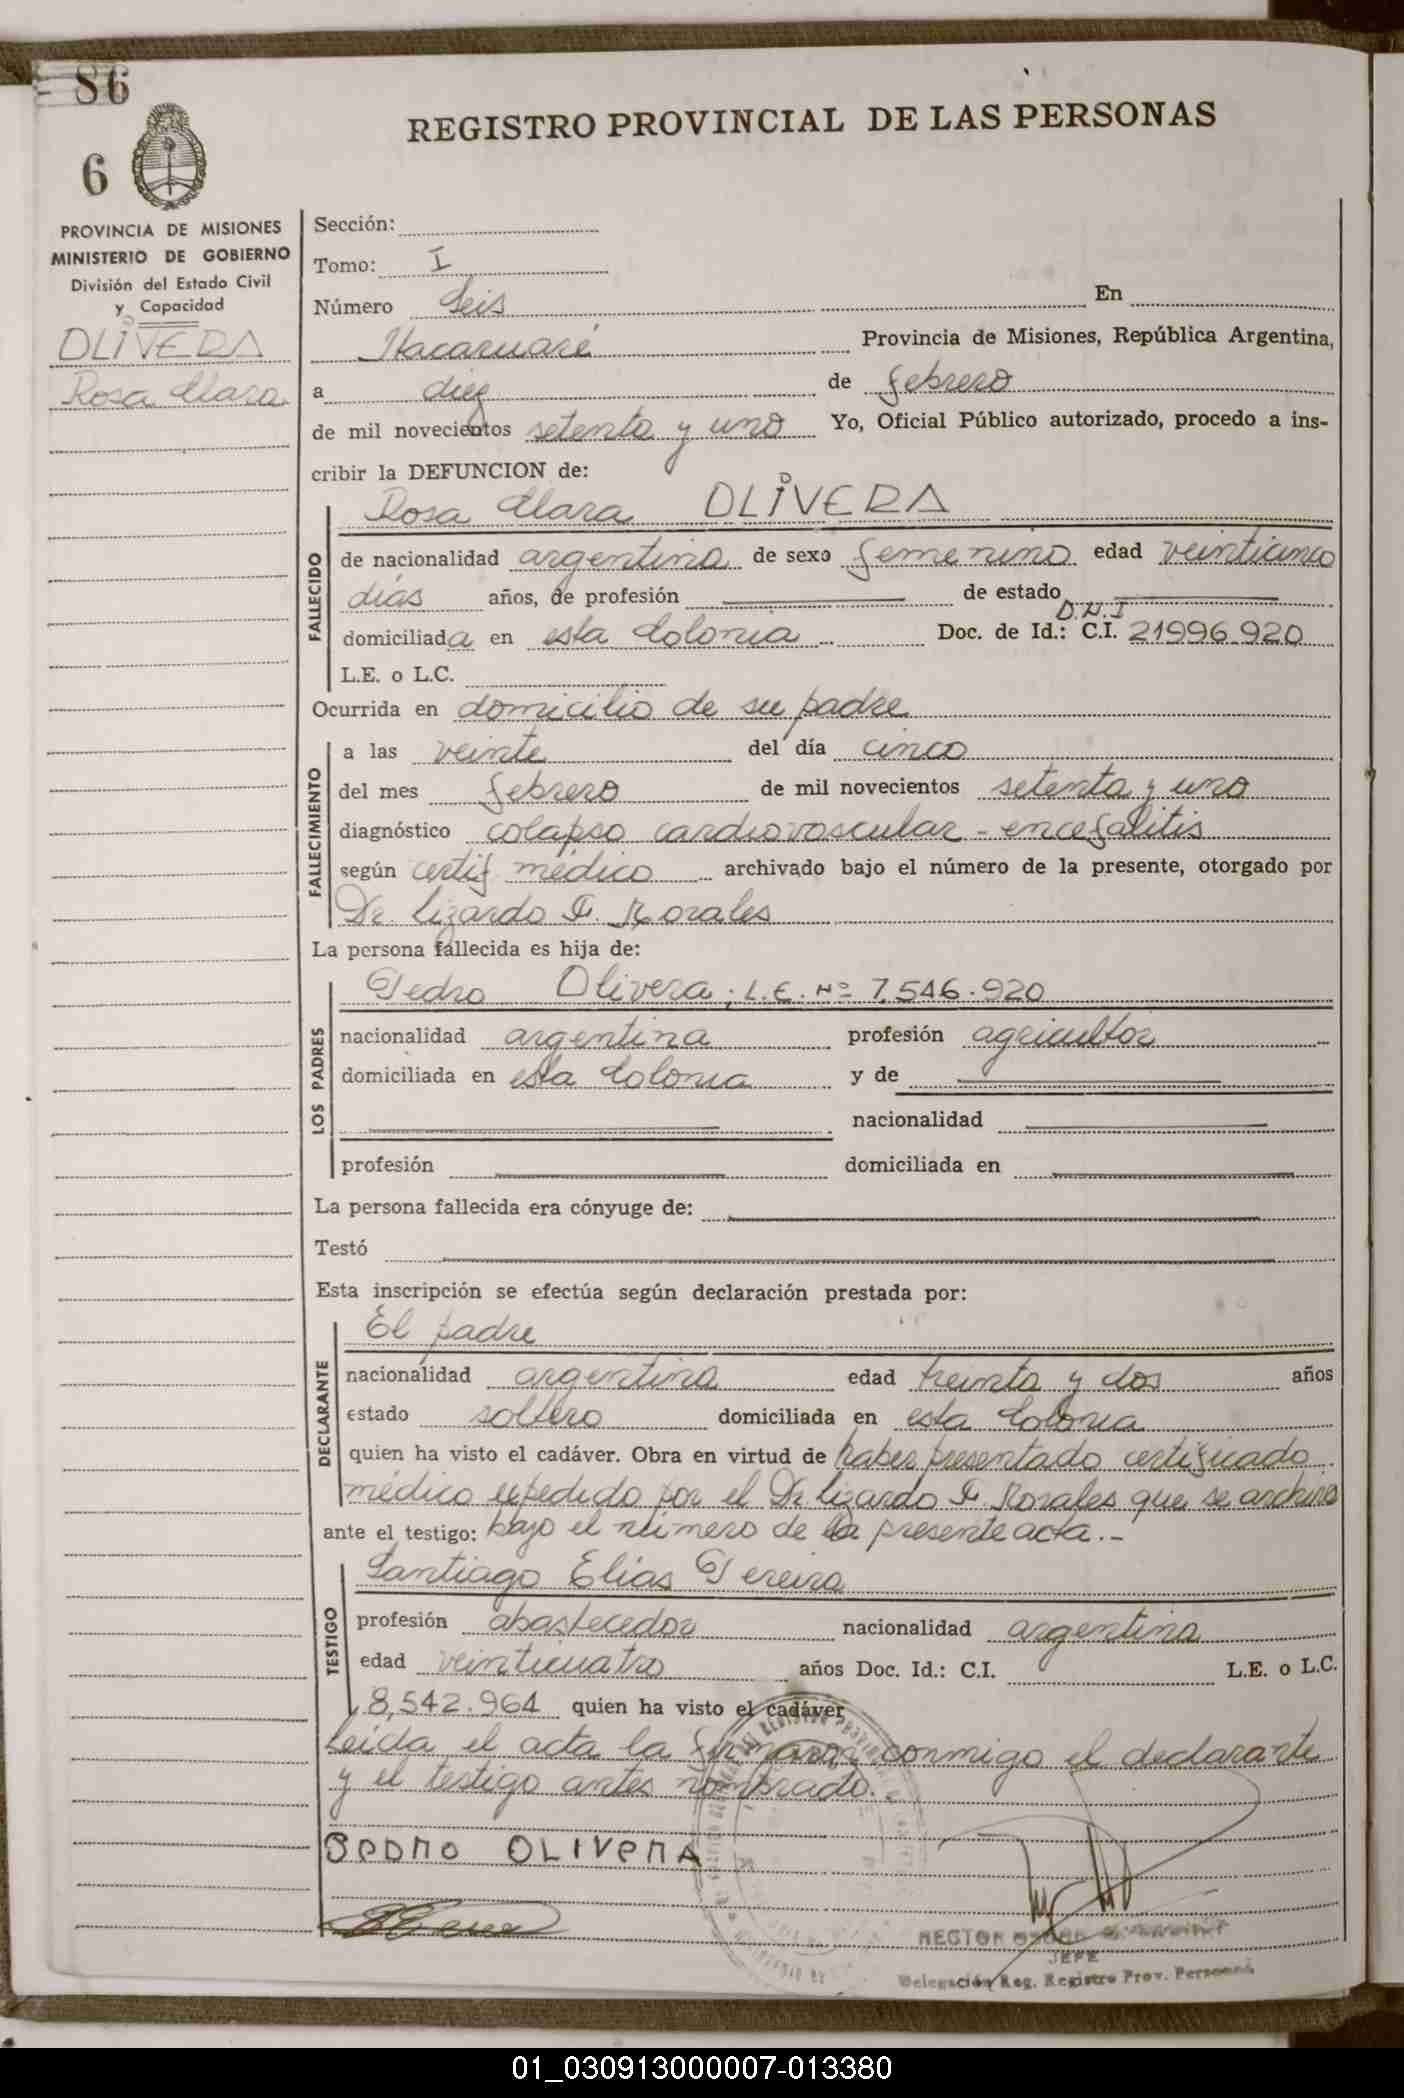 86
6
REGISTRO PROVINCIAL DE LAS PERSONAS
PROVINCIA DE MISIONES
MINISTERIO DE GOBIERNO
División del Estado Civil
y Capacidad
OLIVERA
Rosa Clara
Sección:
Tomo: I
Número Seis En
Itacaruaré Provincia de Misiones, República Argentina,
a diez de febrero
de mil novecientos setenta y uno Yo, Oficial Público autorizado, procedo a ins-
cribir la DEFUNCION de:
Rosa Clara OLIVERA
FALLECIDO
de nacionalidad argentina de sexo femenino edad veinticinco
días años, de profesión de estado
D.N.I
domiciliada en esta Colonia Doc. de Id.: C.I. 21996.920
L.E. o L.C.
Ocurrida en domicilio de su padre
FALLECIMIENTO
a las veinte del día cinco
del mes febrero de mil novecientos setenta y uno
diagnóstico colapso cardiovascular - encefalitis
según certif médico archivado bajo el número de la presente, otorgado por
Dr. Lizardo F. Morales
La persona fallecida es hija de:
LOS PADRES
Pedro Olivera; L.E. Nº 7.546.920
nacionalidad argentina profesión agricultor
domiciliada en esta Colonia y de
nacionalidad
profesión domiciliada en
La persona fallecida era cónyuge de:
Testó
Esta inscripción se efectúa según declaración prestada por:
DECLARANTE
El padre
nacionalidad argentina edad treinta y dos años
estado soltero domiciliada en esta Colonia
quien ha visto el cadáver. Obra en virtud de haber presentado certificado
médico expedido por el Dr Lizardo F. Morales que se archiva
ante el testigo: bajo el número de la presente acta.-
TESTIGO
Santiago Elías Pereira
profesión abastecedor nacionalidad argentina
edad veinticuatro años Doc. Id.: C.I. L.E. o L.C.
8,542.964 quien ha visto el cadáver
Leida el acta la firmaron conmigo el declarante
y el testigo antes nombrado.
PEDRO OLIVERA
HECTOR
JEFE
Delegación Reg. Registro Prov. Personas
01_030913000007-013380